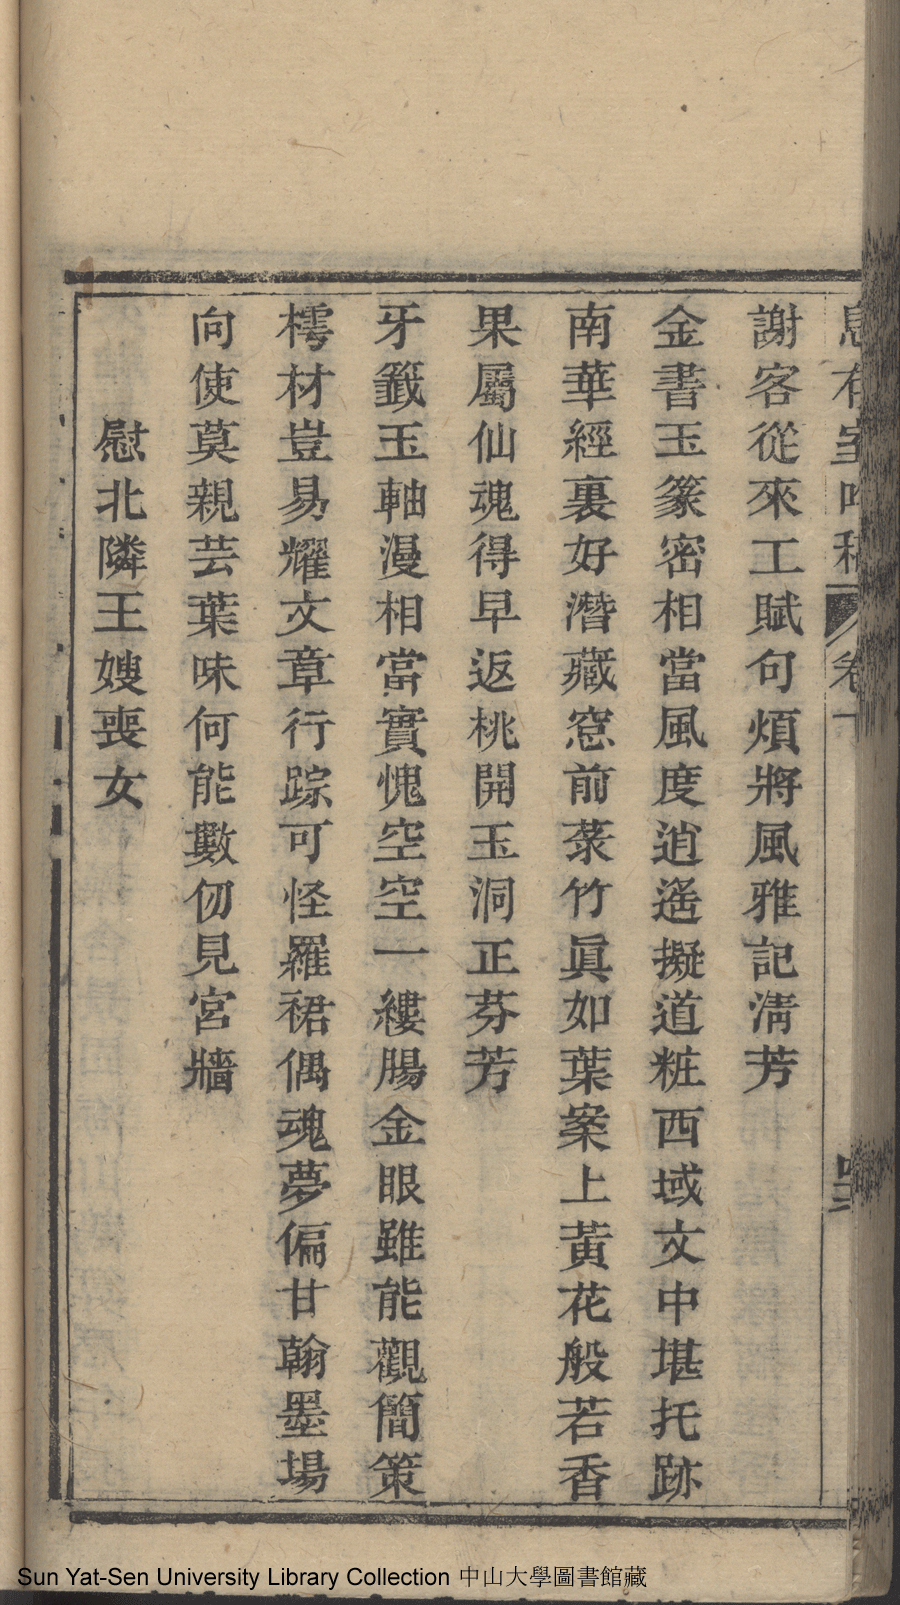 謝客從來工賦句煩將風雅記淸芳
金書玉篆密相當風度逍遙擬道粧西域文中堪托跡
南華經裏好潛藏窓前菉竹眞如葉案上黃花般若香
果屬仙魂得早返桃開玉洞正芬芳
牙籤玉軸漫相當實愧空空一縷腸金眼雖能觀簡策
樗材豈易耀文章行踪可怪羅裙偶魂夢偏甘翰墨場
向使莫親芸葉味何能數仞見宮牆
慰北隣王嫂喪女
Sun Yat-Sen University Library Collection 中山大學圖書館藏